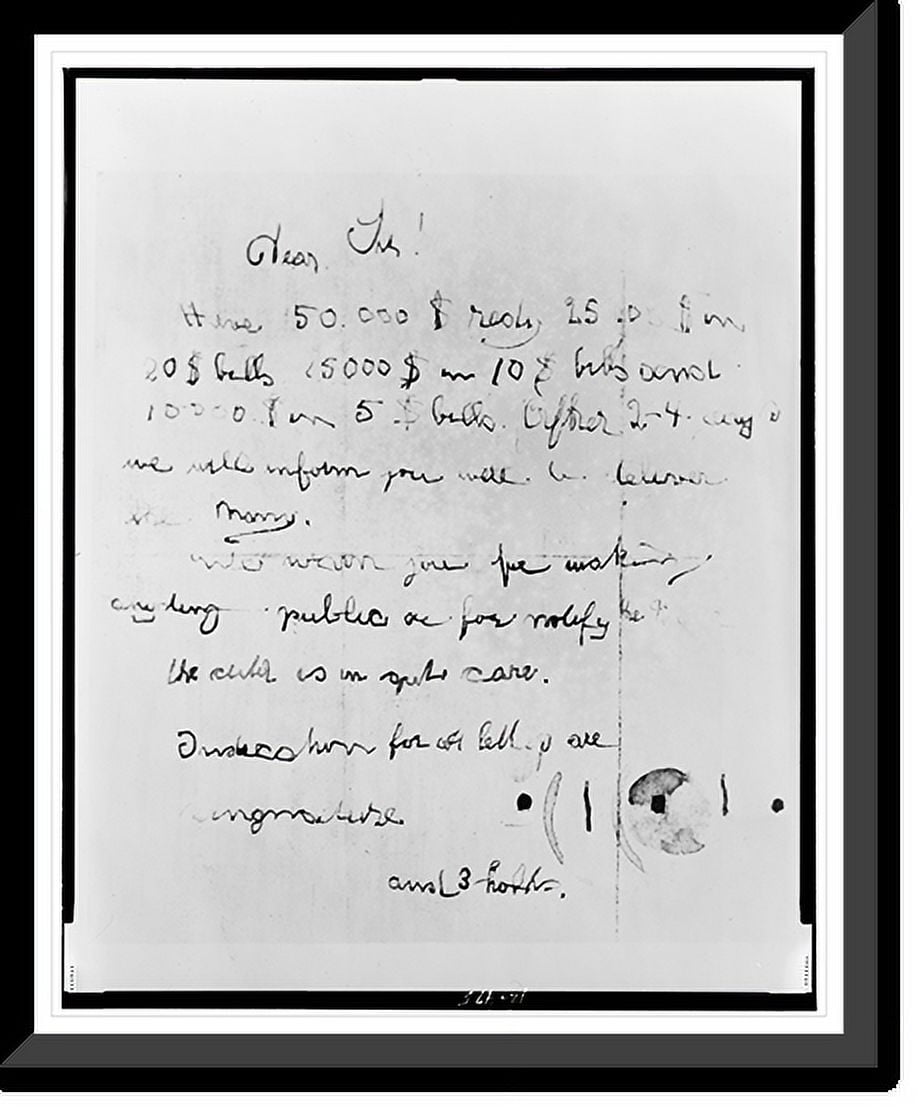 Dear Sir!
Have 50.000 $ redy 25 0 $ in
20 $ bills 15000 $ in 10 $ bills and
10000 $ in 5 $ bills. After 2-4
we will inform you were to deliver
the Mony.
we warn you for making
anyding public or for notify the
the child is in gut care.
Indication for all letters are
singnature
and 3 hohls.